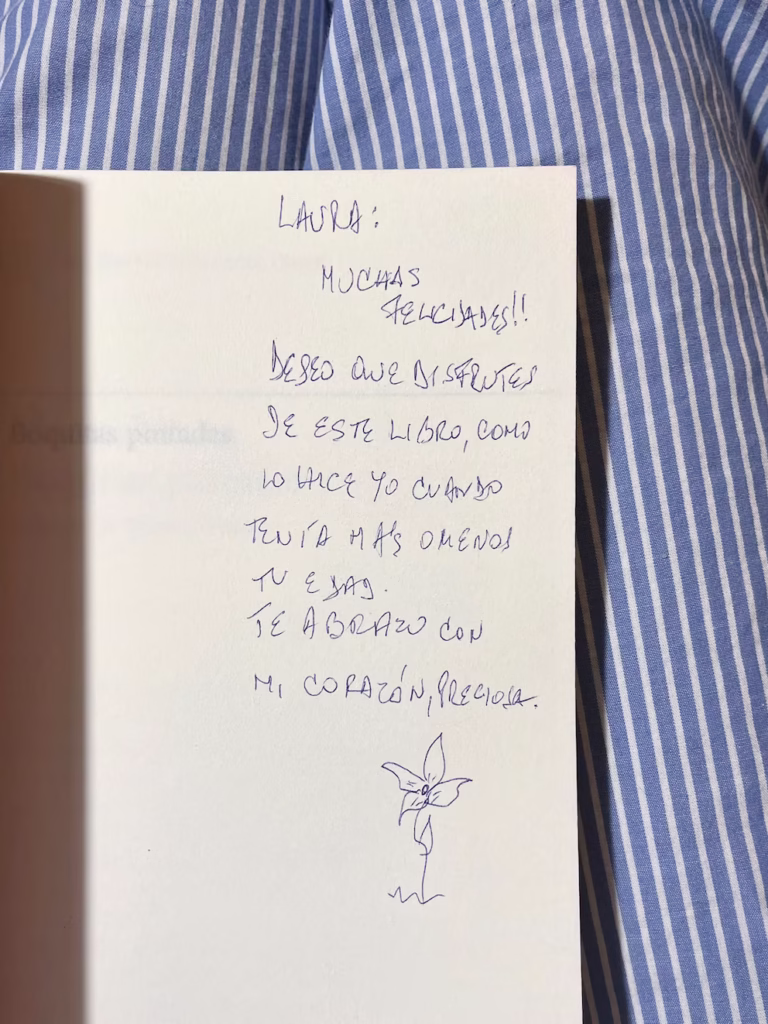 LAURA:
MUCHAS
FELICIDADES!!
DESEO QUE DISFRUTES
DE ESTE LIBRO, COMO
LO HICE YO CUANDO
TENÍA MÁS O MENOS
TU EDAD.
TE ABRAZO CON
MI CORAZÓN, PRECIOSA.
Boquitas pintadas